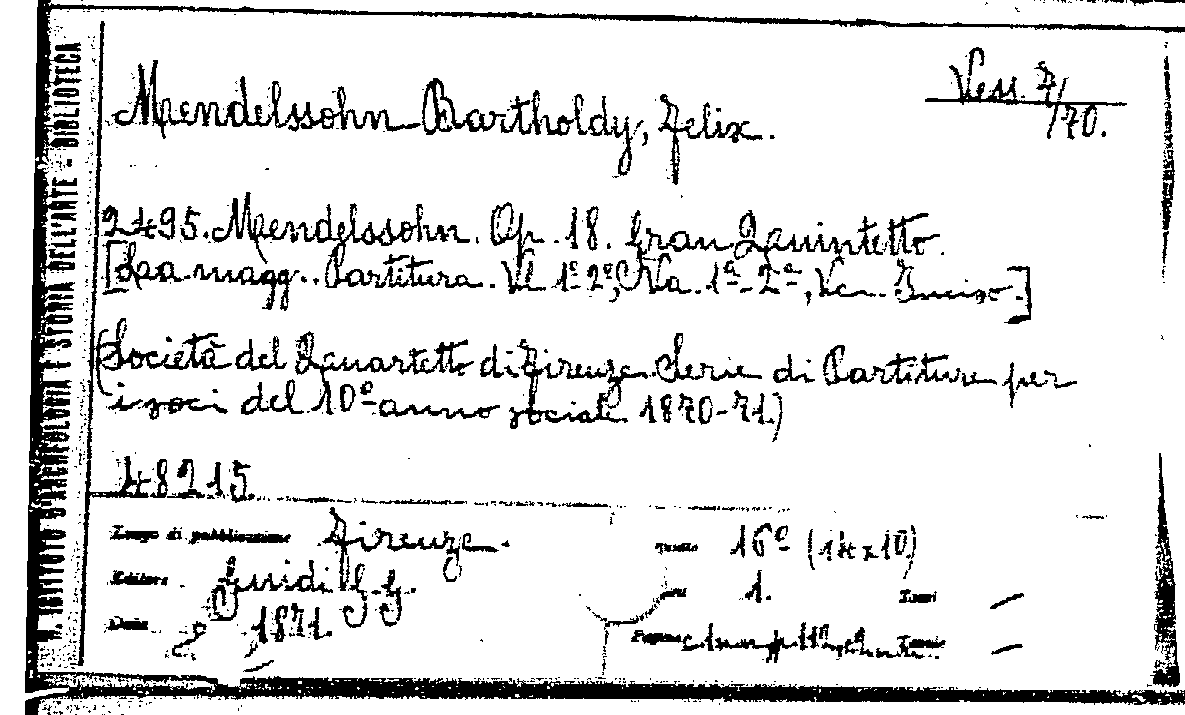 R. ISTITUTO D'ARCHEOLOGIA E STORIA DELL'ARTE - BIBLIOTECA
Vess. 7/70.
Mendelssohn Bartholdy, Felix.
2495. Mendelssohn. Op. 18. Gran Quintetto.
[La magg.. Partitura. Vl 1º 2º, Va. 1ª-2ª, Vc..]
(Società del Quartetto di Firenze. Serie di Partiture per
i soci del 10º anno sociale 1870-71.)
48215
Luogo di pubblicazione Firenze.
Editore Guidi G.G.
Data 1871.
16º (14x10)
1. Tomi —
Pagine Tavole —